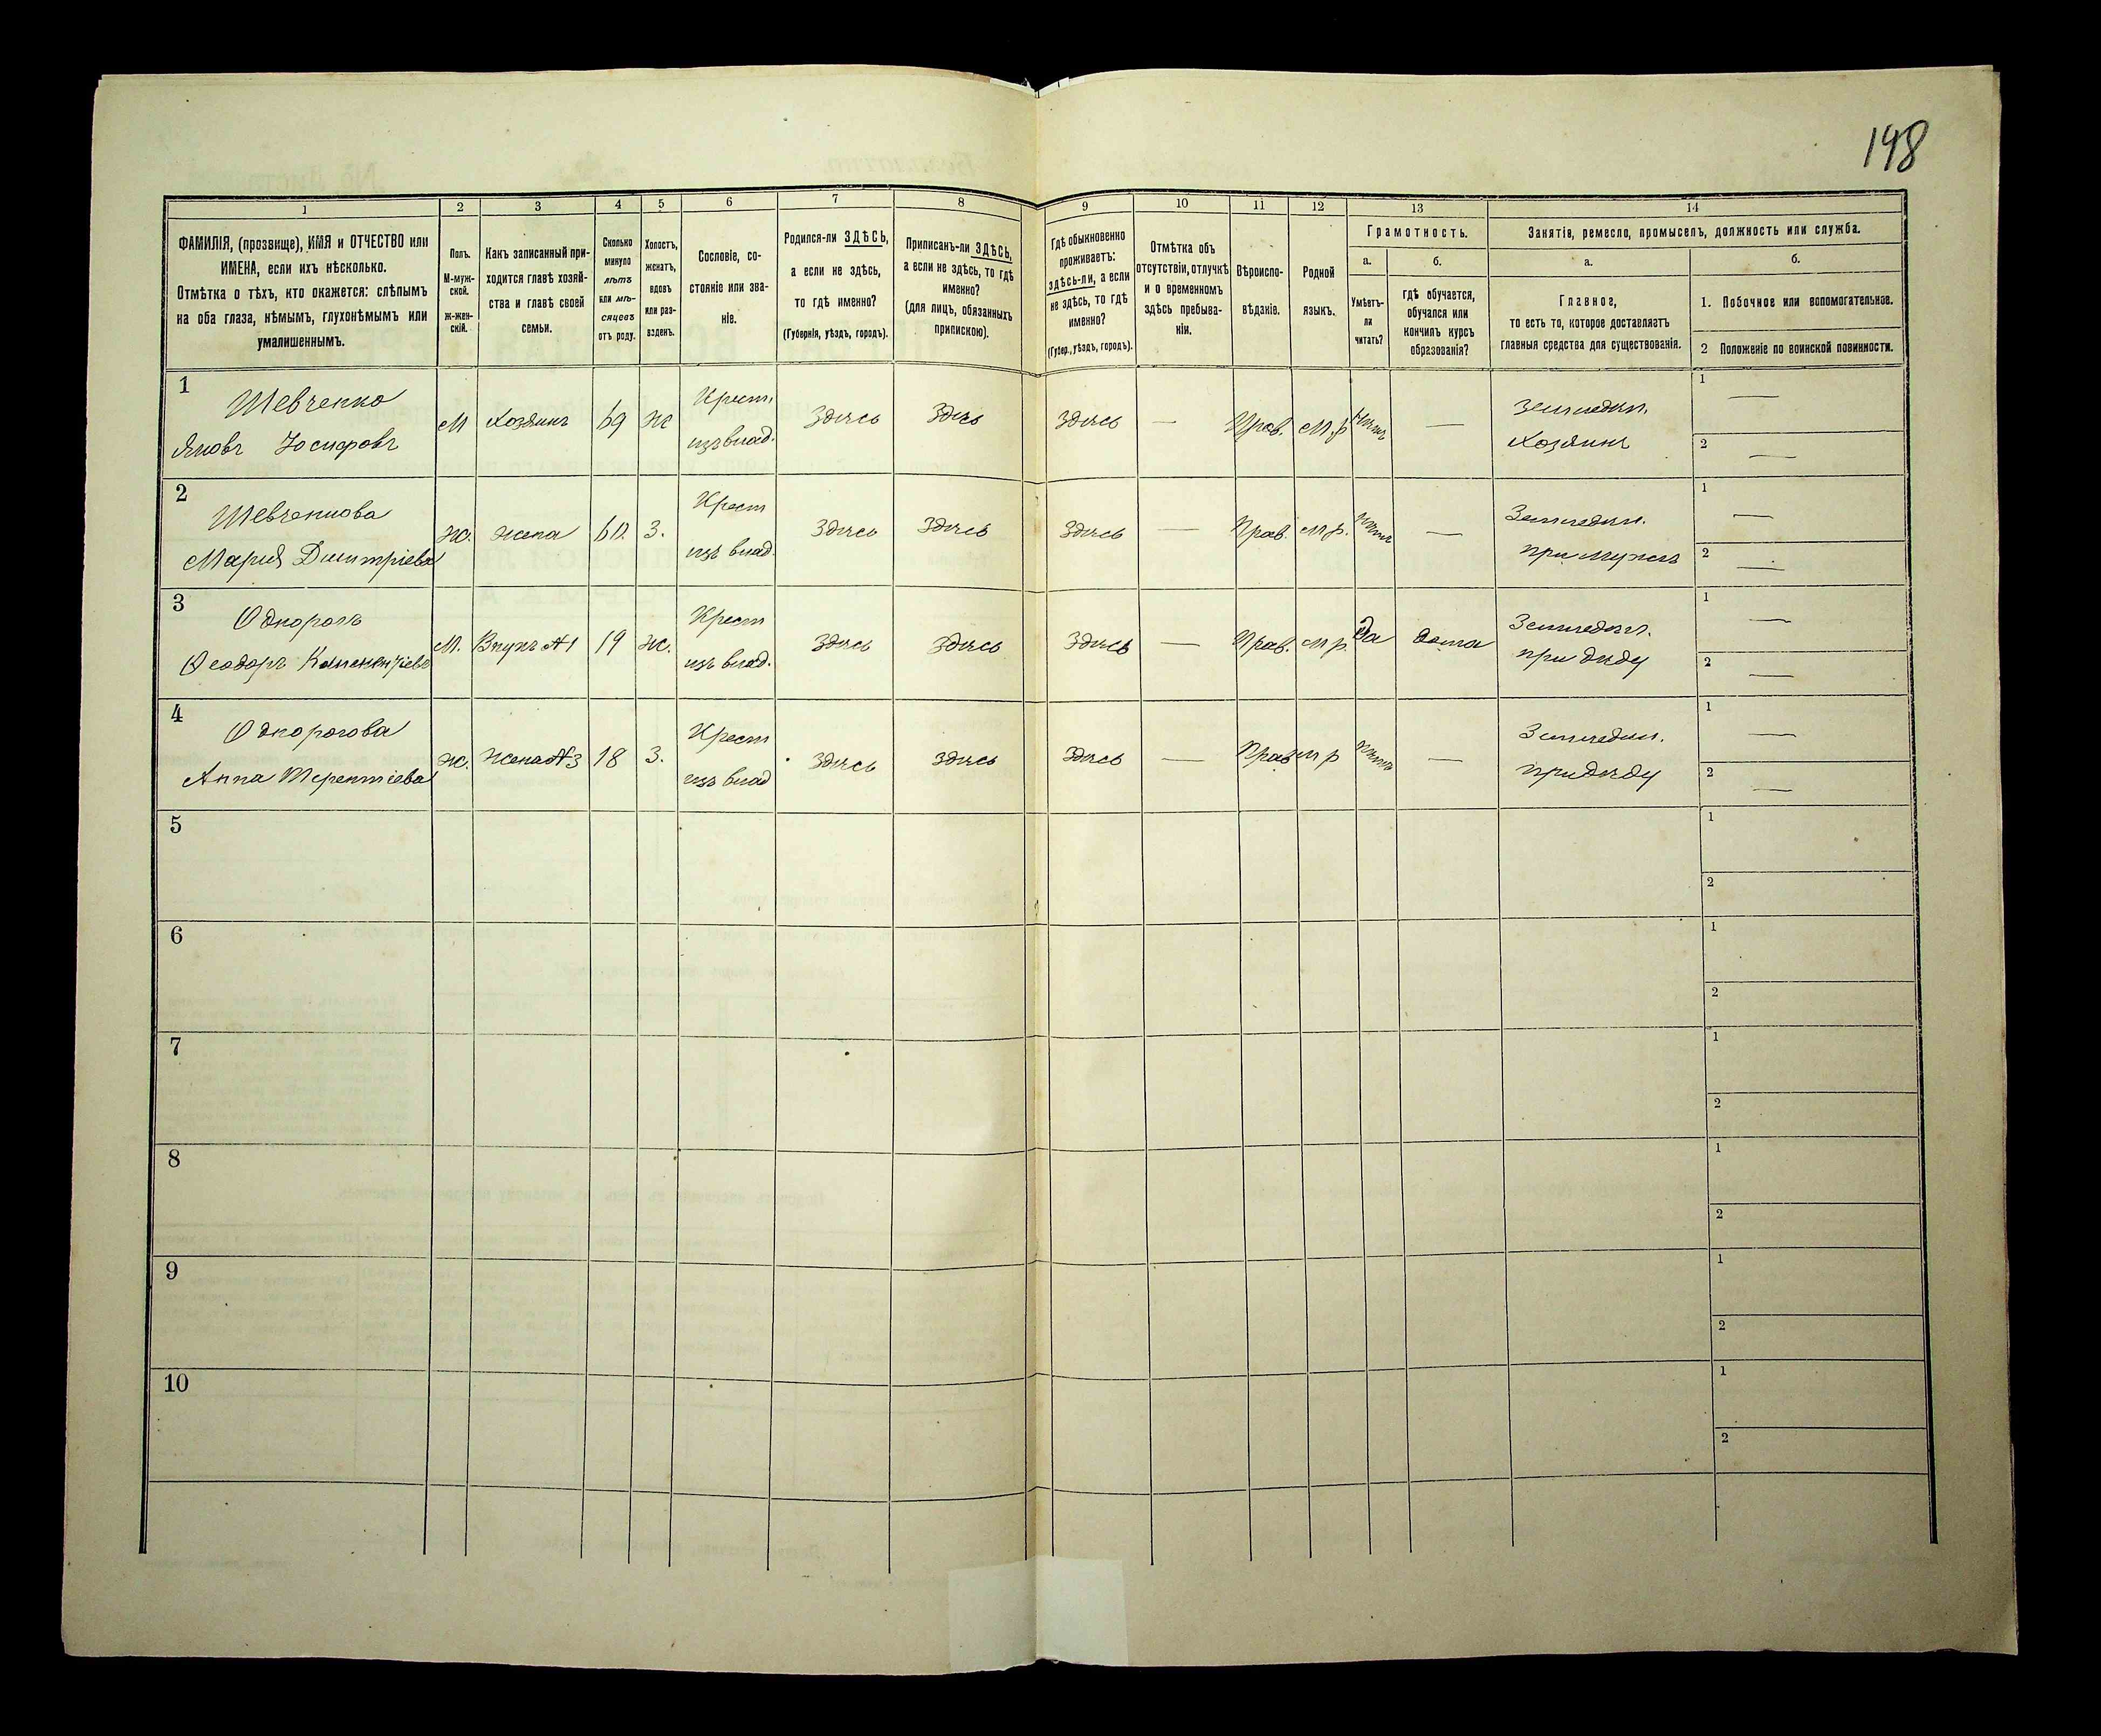 198
1 2 3 4 5 6 7 8 9 10 11 12 13 14
ФАМИЛІЯ, (прозвище), ИМЯ и ОТЧЕСТВО или
ИМЕНА, если ихъ нѣсколько.
Отмѣтка о тѣхъ, кто окажется: слѣпымъ
на оба глаза, нѣмымъ, глухонѣмымъ или
умалишеннымъ.
Полъ.
М-муж-
ской.
ж-жен-
скій.
Какъ записанный при-
ходится главѣ хозяй-
ства и главѣ своей
семьи.
Сколько
минуло
лѣтъ
или мѣ-
сяцевъ
отъ роду.
Холостъ,
женатъ,
вдовъ
или раз-
веденъ.
Сословіе, со-
стояніе или зва-
ніе.
Родился-ли ЗДѢСЬ,
а если не здѣсь,
то гдѣ именно?
(Губернія, уѣздъ, городъ).
Приписанъ-ли ЗДѢСЬ,
а если не здѣсь, то гдѣ
именно?
(для лицъ, обязанныхъ
припискою).
Гдѣ обыкновенно
проживаетъ:
здѣсь-ли, а если
не здѣсь, то гдѣ
именно?
(Губер., уѣздъ, городъ).
Отмѣтка объ
отсутствіи, отлучкѣ
и о временномъ
здѣсь пребыва-
ніи.
Вѣроиспо-
вѣданіе.
Родной
языкъ.
Грамотность.
а.
Умѣетъ-
ли
читать?
б.
гдѣ обучается,
обучался или
кончилъ курсъ
образованія?
Занятіе, ремесло, промыселъ, должность или служба.
а.
Главное,
то есть то, которое доставляетъ
главныя средства для существованія.
б.
1. Побочное или вспомогательное.
2 Положеніе по воинской повинности.
1
Шевченко
Яковъ Іосифовъ
М Хозяинъ 69 Ж
Крест.
изъ влад.
Здѣсь Здѣсь Здѣсь — Прав. М.р. Нѣтъ —
Земледѣл.
Хозяинъ
1 —
2 —
2
Шевченкова
Марія Димитріева
Ж. жена 60. З.
Крест
изъ влад.
Здѣсь Здѣсь Здѣсь — Прав. м.р. Нѣтъ —
Земледѣл.
при мужѣ
1 —
2 —
3
Однорогъ
Ѳеодоръ
М. Внукъ №1 19 Ж.
Крест
изъ влад.
Здѣсь Здѣсь Здѣсь — Прав. м р. Да дома
Земледѣл.
при дѣду
1 —
2 —
4
Однорогова
Анна Терентіева
Ж. Жена №3 18 З.
Крест
изъ влад
Здѣсь Здѣсь Здѣсь — Прав м р Нѣтъ —
Земледѣл.
при дѣду
1 —
2 —
5
1
2
6
1
2
7
1
2
8
1
2
9
1
2
10
1
2